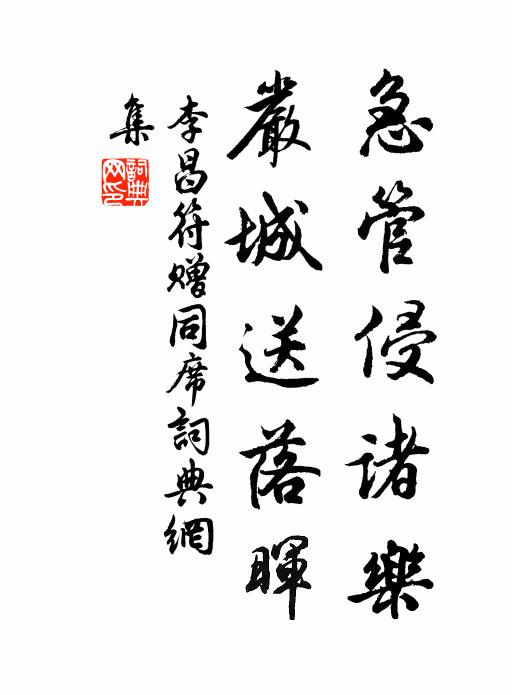 急管侵诸樂
嚴城送落暉
李昌符赠同席詞典網
集
詞典
网印